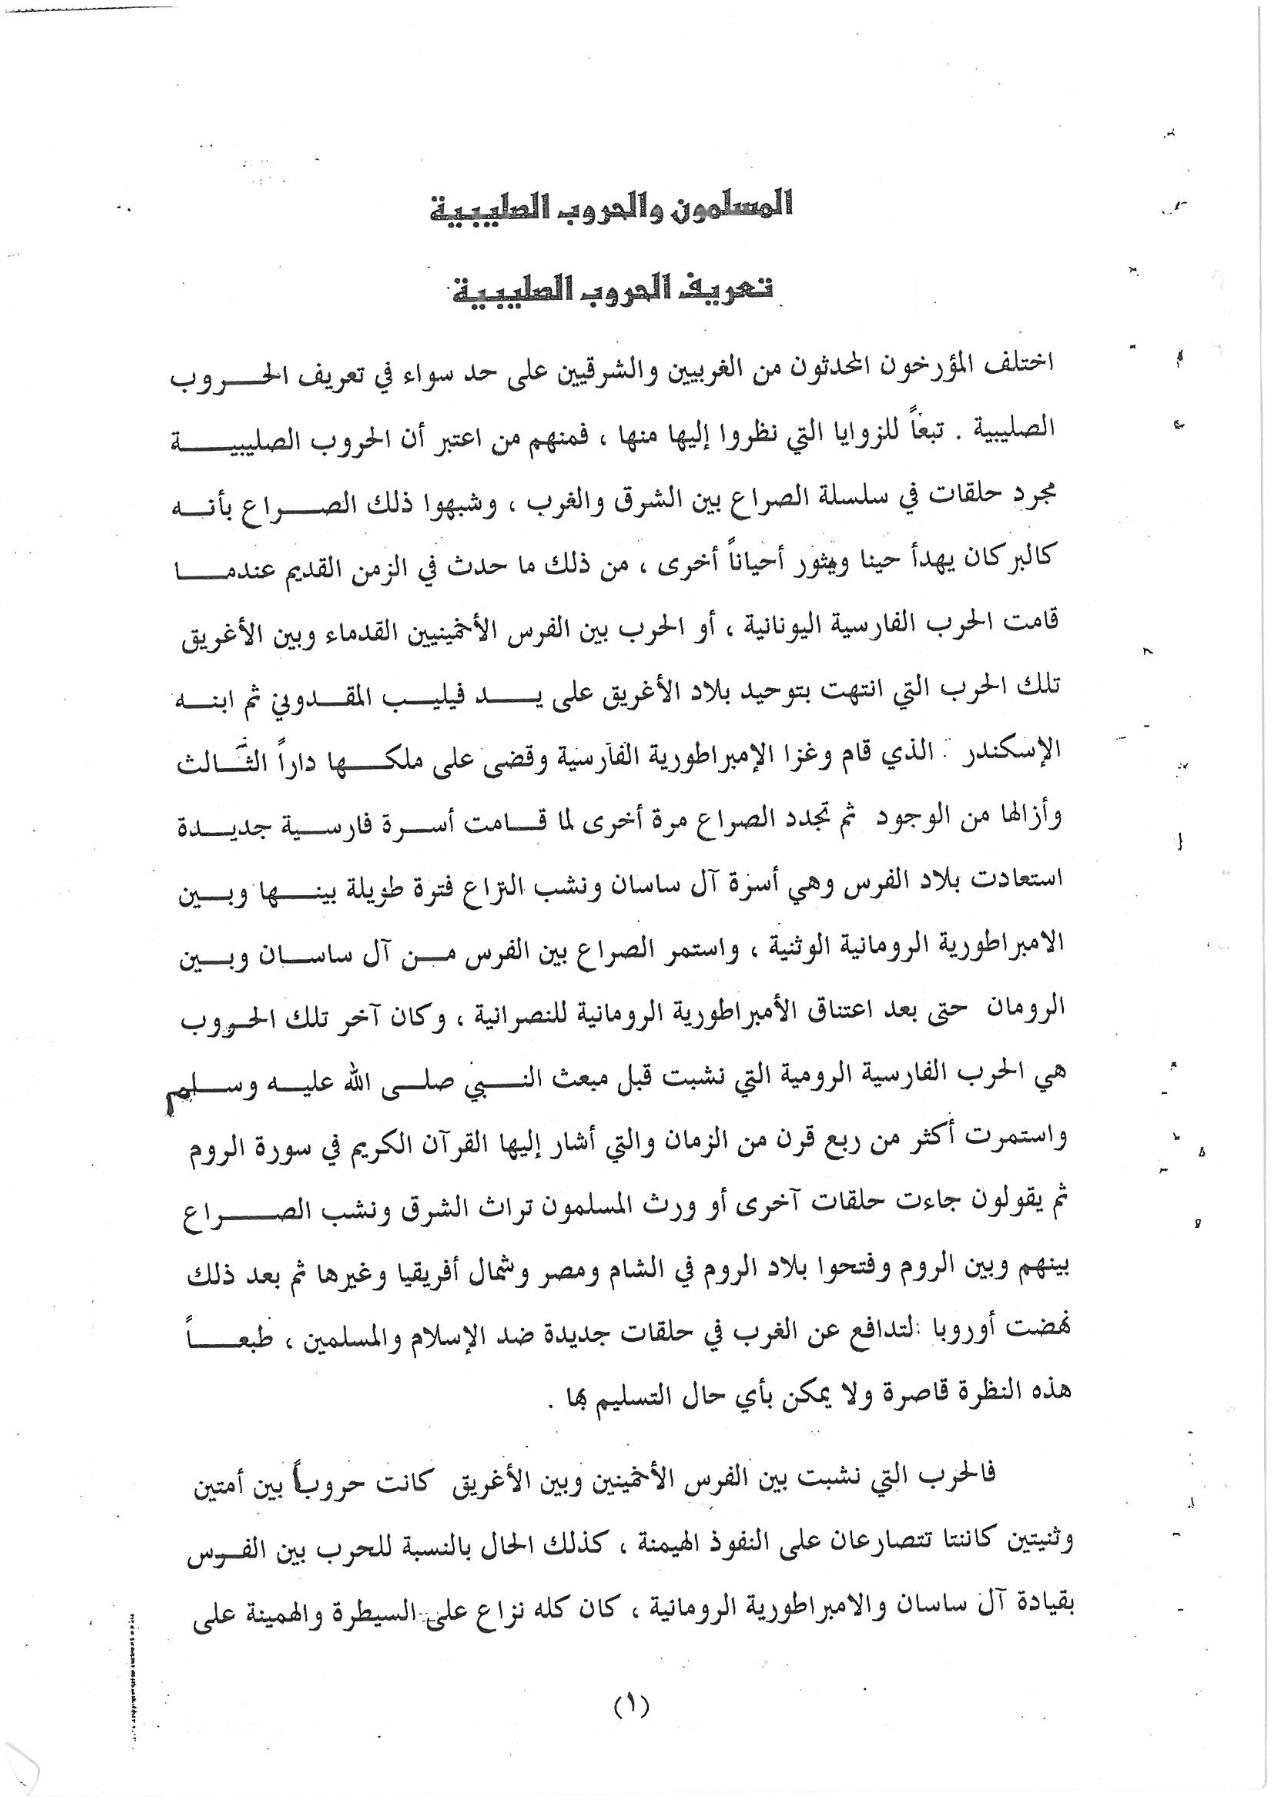 المسلمون والحروب الصليبية
تعريف الحروب الصليبية
اختلف المؤرخون المحدثون من الغربيين والشرقيين على حد سواء في تعريف الحروب
الصليبية . تبعاً للزوايا التي نظروا إليها منها ، فمنهم من اعتبر أن الحروب الصليبية
مجرد حلقات في سلسلة الصراع بين الشرق والغرب ، وشبهوا ذلك الصراع بأنه
كالبركان يهدأ حينا ويثور أحياناً أخرى ، من ذلك ما حدث في الزمن القديم عندما
قامت الحرب الفارسية اليونانية ، أو الحرب بين الفرس الأخمينيين القدماء وبين الأغريق
تلك الحرب التي انتهت بتوحيد بلاد الأغريق على يد فيليب المقدوني ثم ابنه
الإسكندر الذي قام وغزا الإمبراطورية الفارسية وقضى على ملكها داراً الثالث
وأزالها من الوجود ثم تجدد الصراع مرة أخرى لما قامت أسرة فارسية جديدة
استعادت بلاد الفرس وهي أسرة آل ساسان ونشب النزاع فترة طويلة بينها وبين
الامبراطورية الرومانية الوثنية ، واستمر الصراع بين الفرس من آل ساسان وبين
الرومان حتى بعد اعتناق الأمبراطورية الرومانية للنصرانية ، وكان آخر تلك الحروب
هي الحرب الفارسية الرومية التي نشبت قبل مبعث النبي صلى الله عليه وسلم
واستمرت أكثر من ربع قرن من الزمان والتي أشار إليها القرآن الكريم في سورة الروم
ثم يقولون جاءت حلقات آخرى أو ورث المسلمون تراث الشرق ونشب الصراع
بينهم وبين الروم وفتحوا بلاد الروم في الشام ومصر وشمال أفريقيا وغيرها ثم بعد ذلك
نهضت أوروبا لتدافع عن الغرب في حلقات جديدة ضد الإسلام والمسلمين ، طبعاً
هذه النظرة قاصرة ولا يمكن بأي حال التسليم بها .
فالحرب التي نشبت بين الفرس الأخمينين وبين الأغريق كانت حروباً بين أمتين
وثنيتين كاننتا تتصارعان على النفوذ الهيمنة ، كذلك الحال بالنسبة للحرب بين الفرس
بقيادة آل ساسان والامبراطورية الرومانية ، كان كله نزاع على السيطرة والهمينة على
(١)